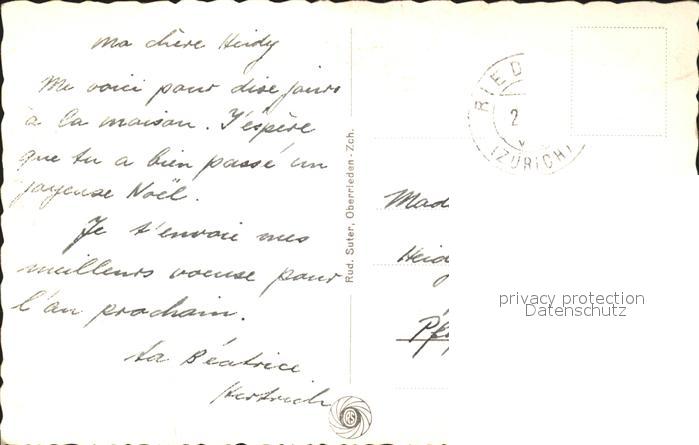 ma chère Heidy
Me voici pour dixe jours
à la maison. J'éspère
que tu a bien passé un
joyeuse Noël.
Je t'envoie mes
meilleurs voeuse pour
l'an prochain.
ta Béatrice
Rud. Suter, Oberrieden-Zch.
RIED
2
(ZÜRICH)
Mad
Heid
Pf
privacy protection
Datenschutz